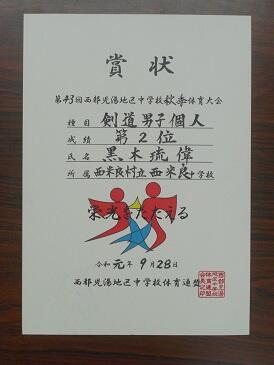 賞状
第43回西都児湯地区中学校秋季体育大会
種目 剣道男子個人
成績 第2位
氏名 黒木琉偉
所属 西米良村立西米良中学校
栄光をたたえる
令和元年9月28日
西都児湯地区中学校体育連盟